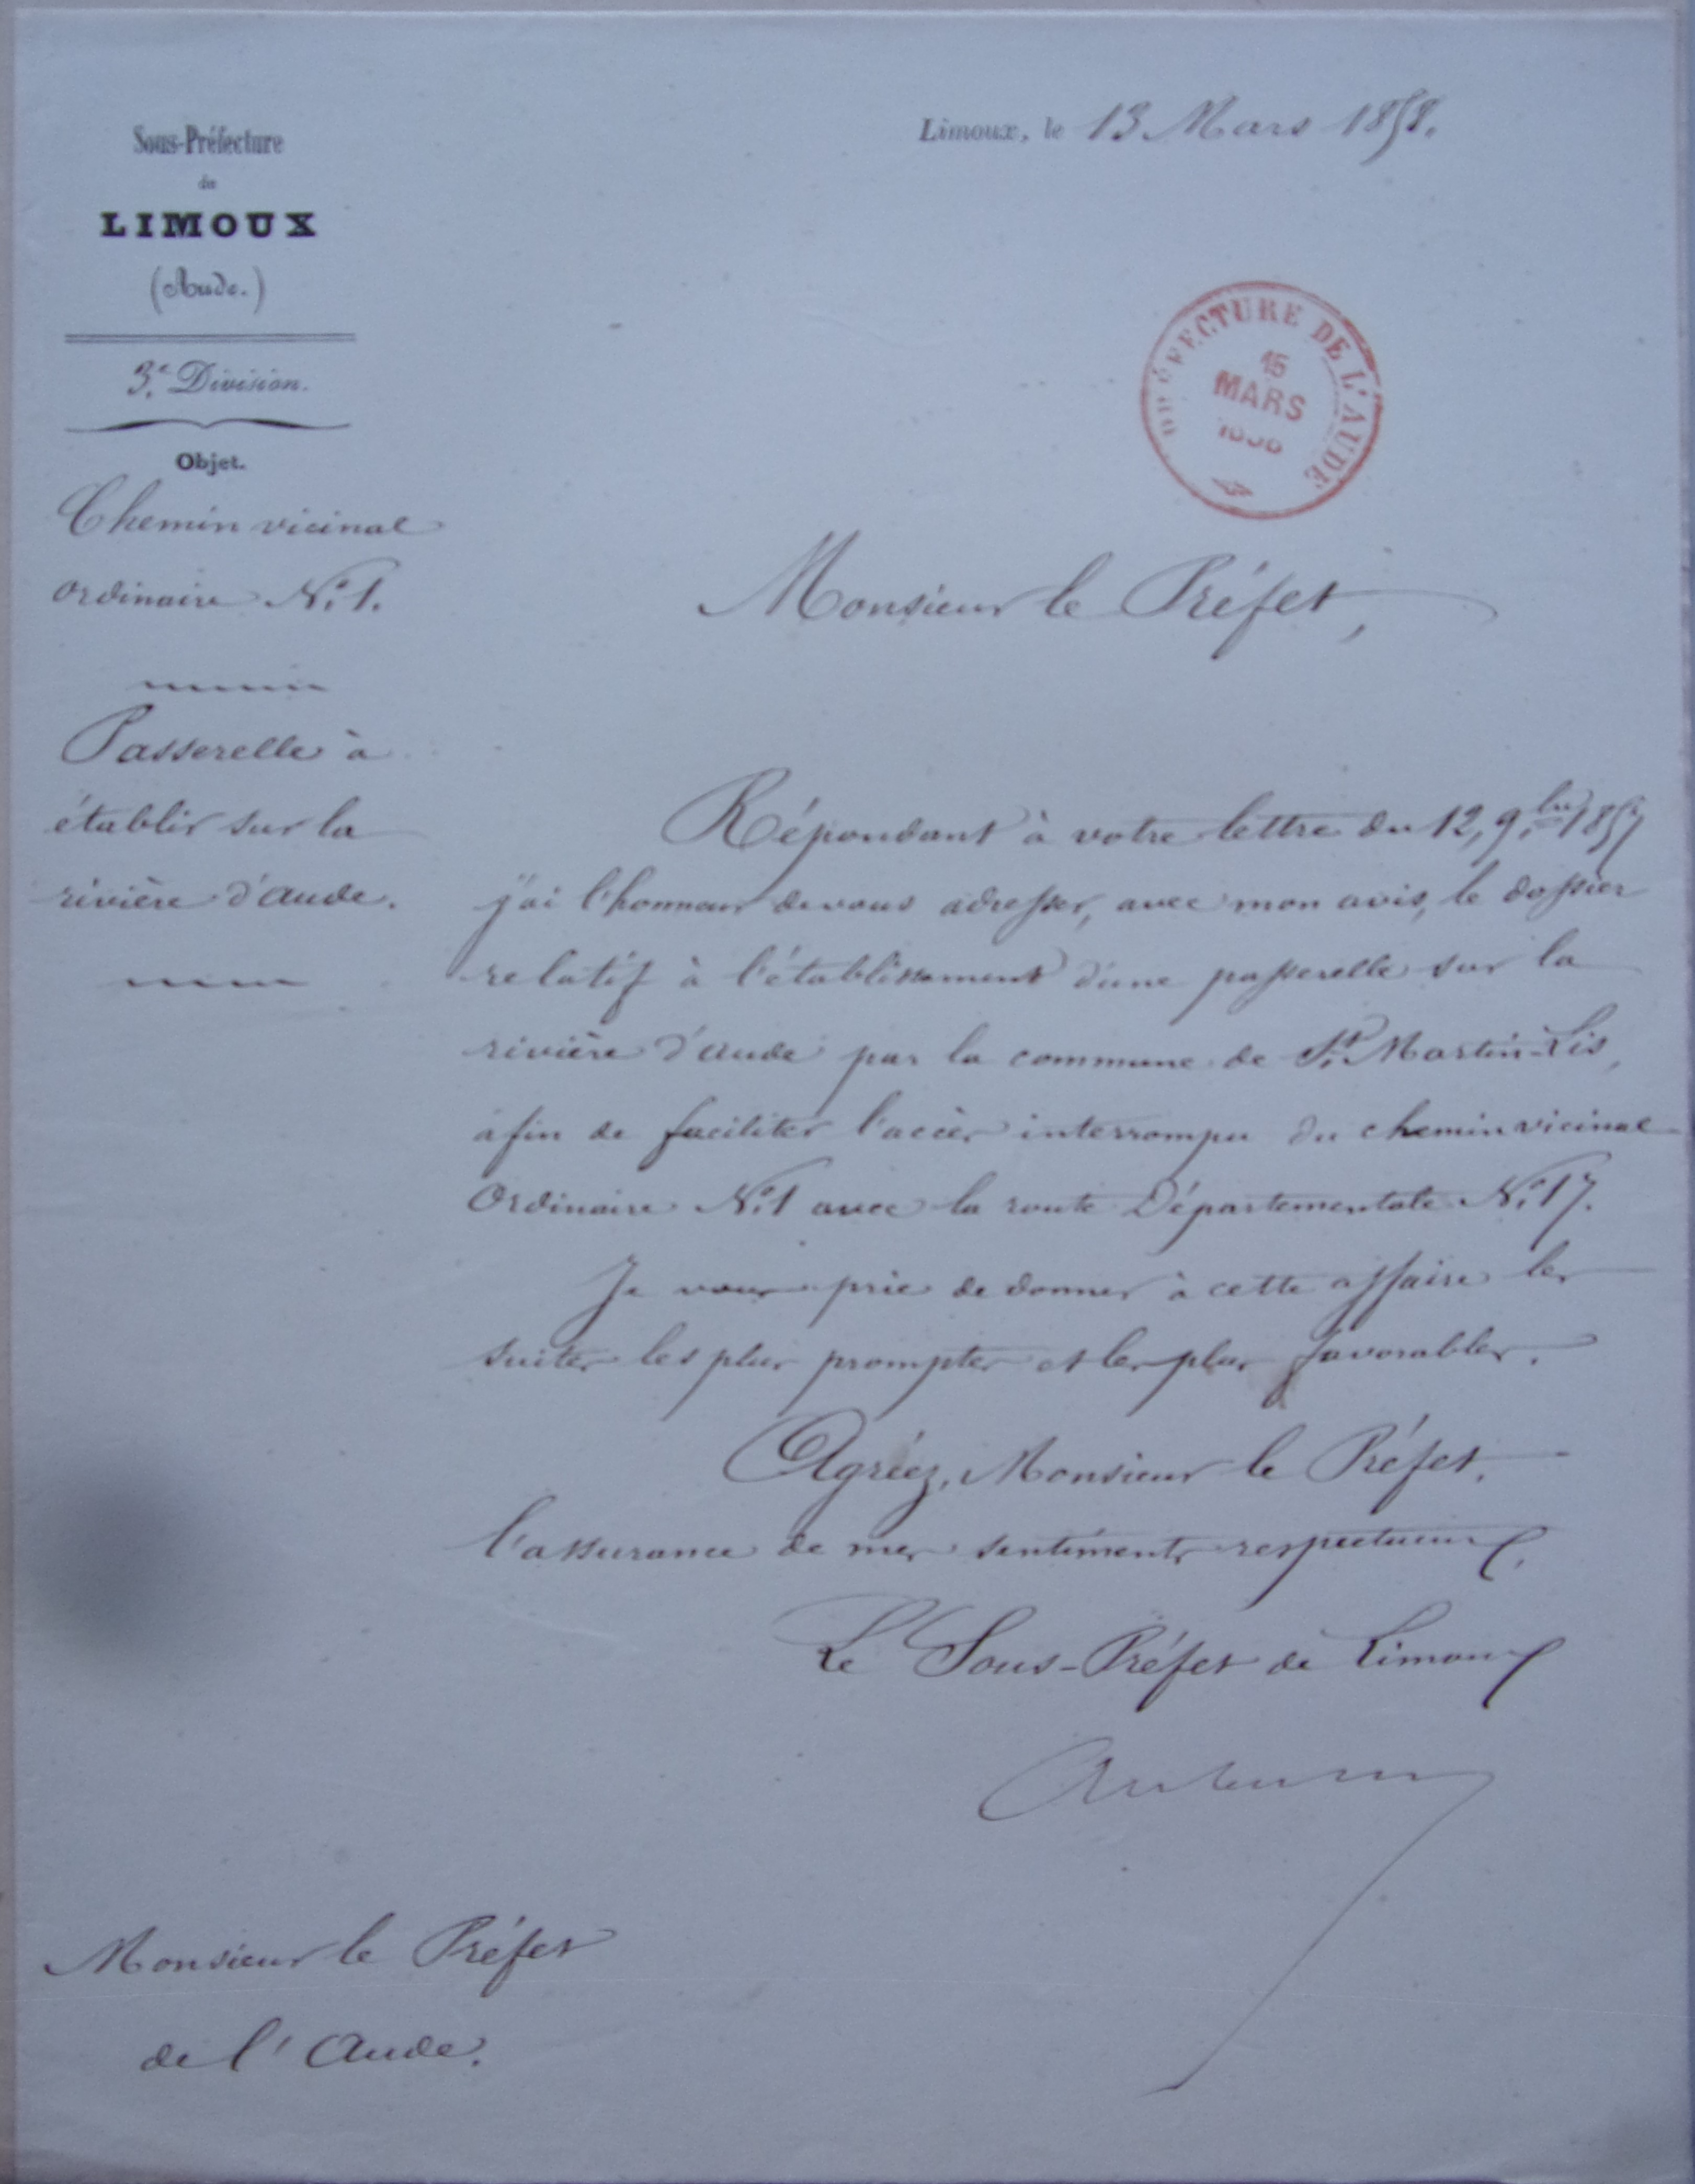 Sous-Préfecture
de
LIMOUX
(Aude.)
3.e Division.
Objet.
Chemin vicinal
ordinaire N.o 1.
Passerelle à
établir sur la
rivière d'aude.
Limoux, le 13 Mars 1858.
PRÉFECTURE DE L'AUDE
15
MARS
1858
Monsieur le Préfet,
Répondant à votre lettre du 12, 9.bre 1857
j'ai l'honneur de vous adresser, avec mon avis, le dossier
relatif à l'établissement d'une passerelle sur la
rivière d'aude par la commune de St. Martin-Lis,
afin de faciliter l'accès interrompu du chemin vicinal
Ordinaire N.o 1 avec la route Départementale N.o 17.
Je vous prie de donner à cette affaire les
suites les plus promptes et les plus favorables.
Agréez, Monsieur le Préfet,
l'assurance de mes sentiments respectueux,
Le Sous-Préfet de Limoux
Monsieur le Préfet
de l'Aude.